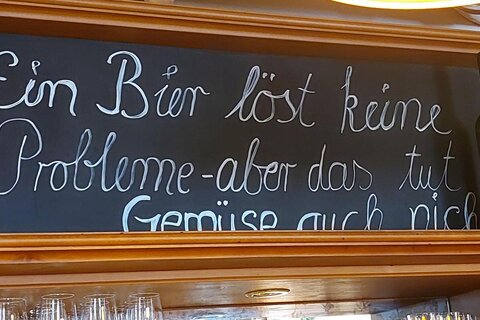 Ein Bier löst keine
Probleme-aber das tut
Gemüse auch nich